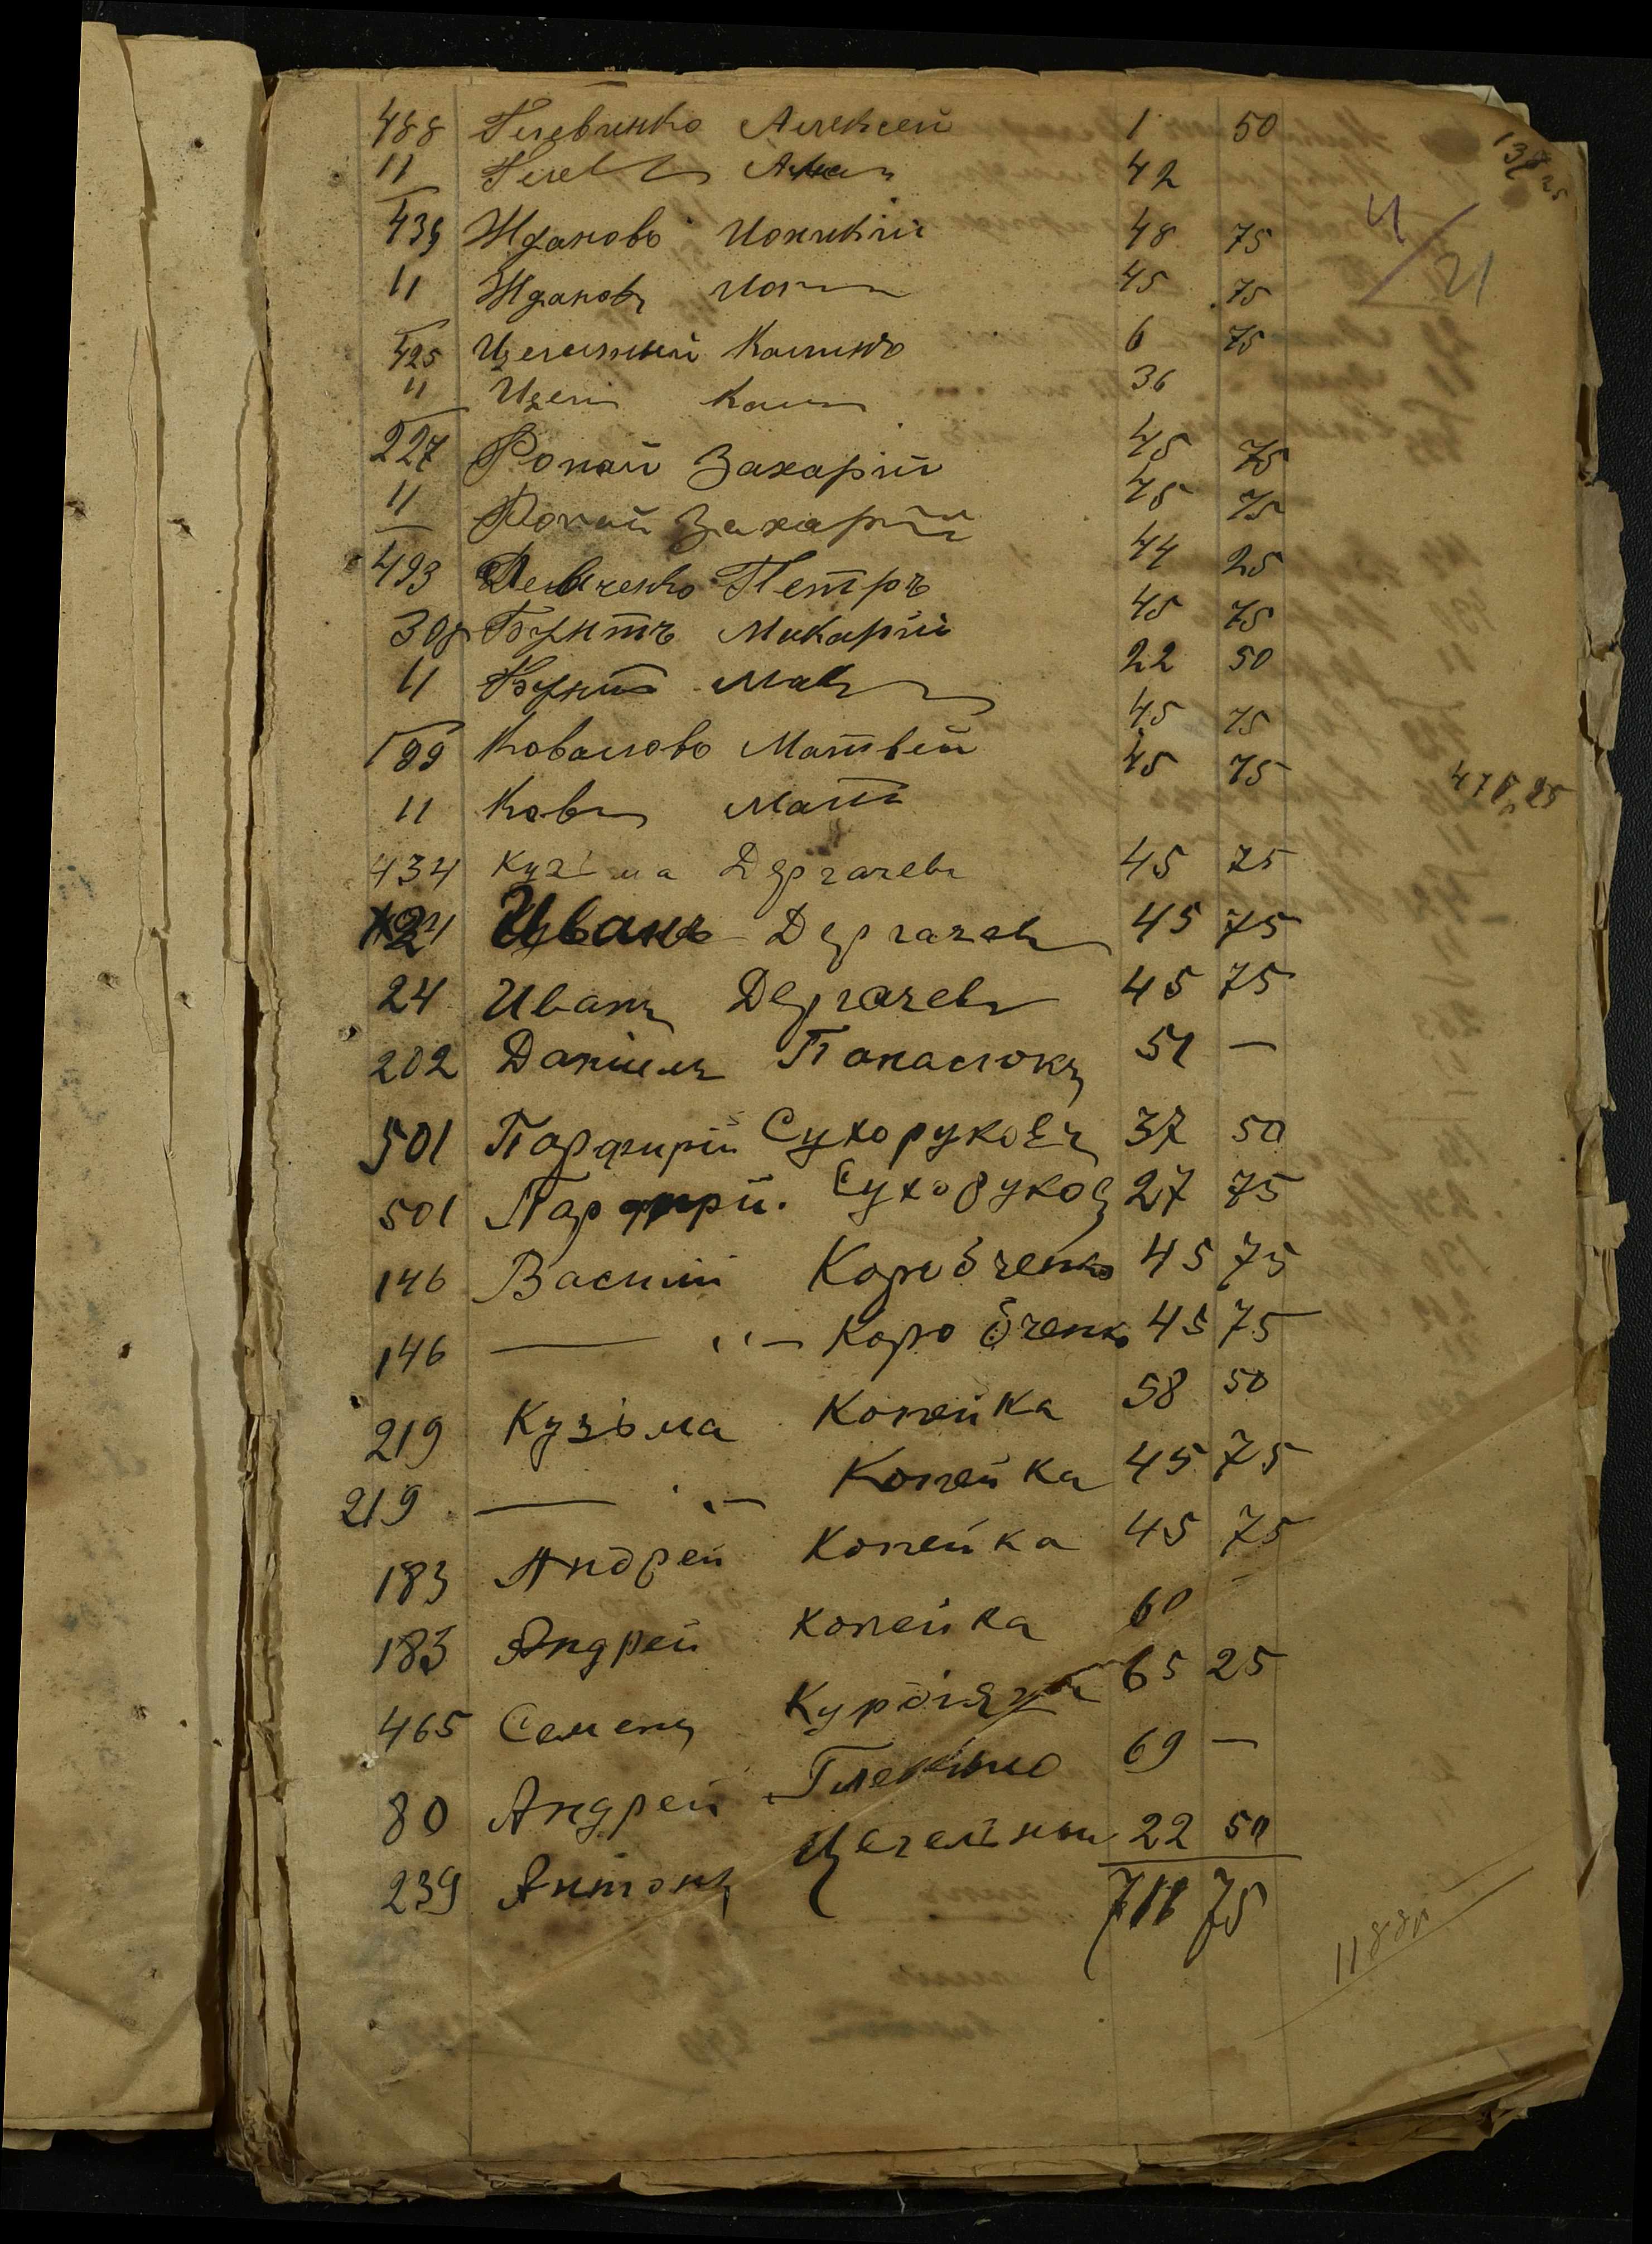 488 Гелевченко Алексей 1 50
11 42
439 Ждановъ Ионикий 48 75
11 Ждановъ 45 75
425 Цегельный Калинъ 6 75
11 36
227 Ропай Захарий 45 75
11 Ропай Захарий 45 75
493 Петръ 44 25
308 Бунтъ Макарий 45 75
11 Бунтъ Мак 22 50
199 Коваловъ Матвей 45 75
11 Ков Матв 45 75
434 Кузьма Дергачевъ 45 75
24 Иванъ Дергачевъ 45 75
24 Иванъ Дергачевъ 45 75
202 Даниилъ Панасюкъ 51 —
501 Парфирий Сухоруковъ 37 50
501 Парфирий Сухоруков 27 75
146 Василий Коробченко 45 75
146 — " — Коробченко 45 75
219 Кузьма Копейка 58 50
219 — " — Копейка 45 75
183 Андрей Копейка 45 75
183 Андрей Копейка 60 -
465 Семенъ 65 25
80 Андрей 69 —
239 Антонъ Цегельный 22 50
711 75
21